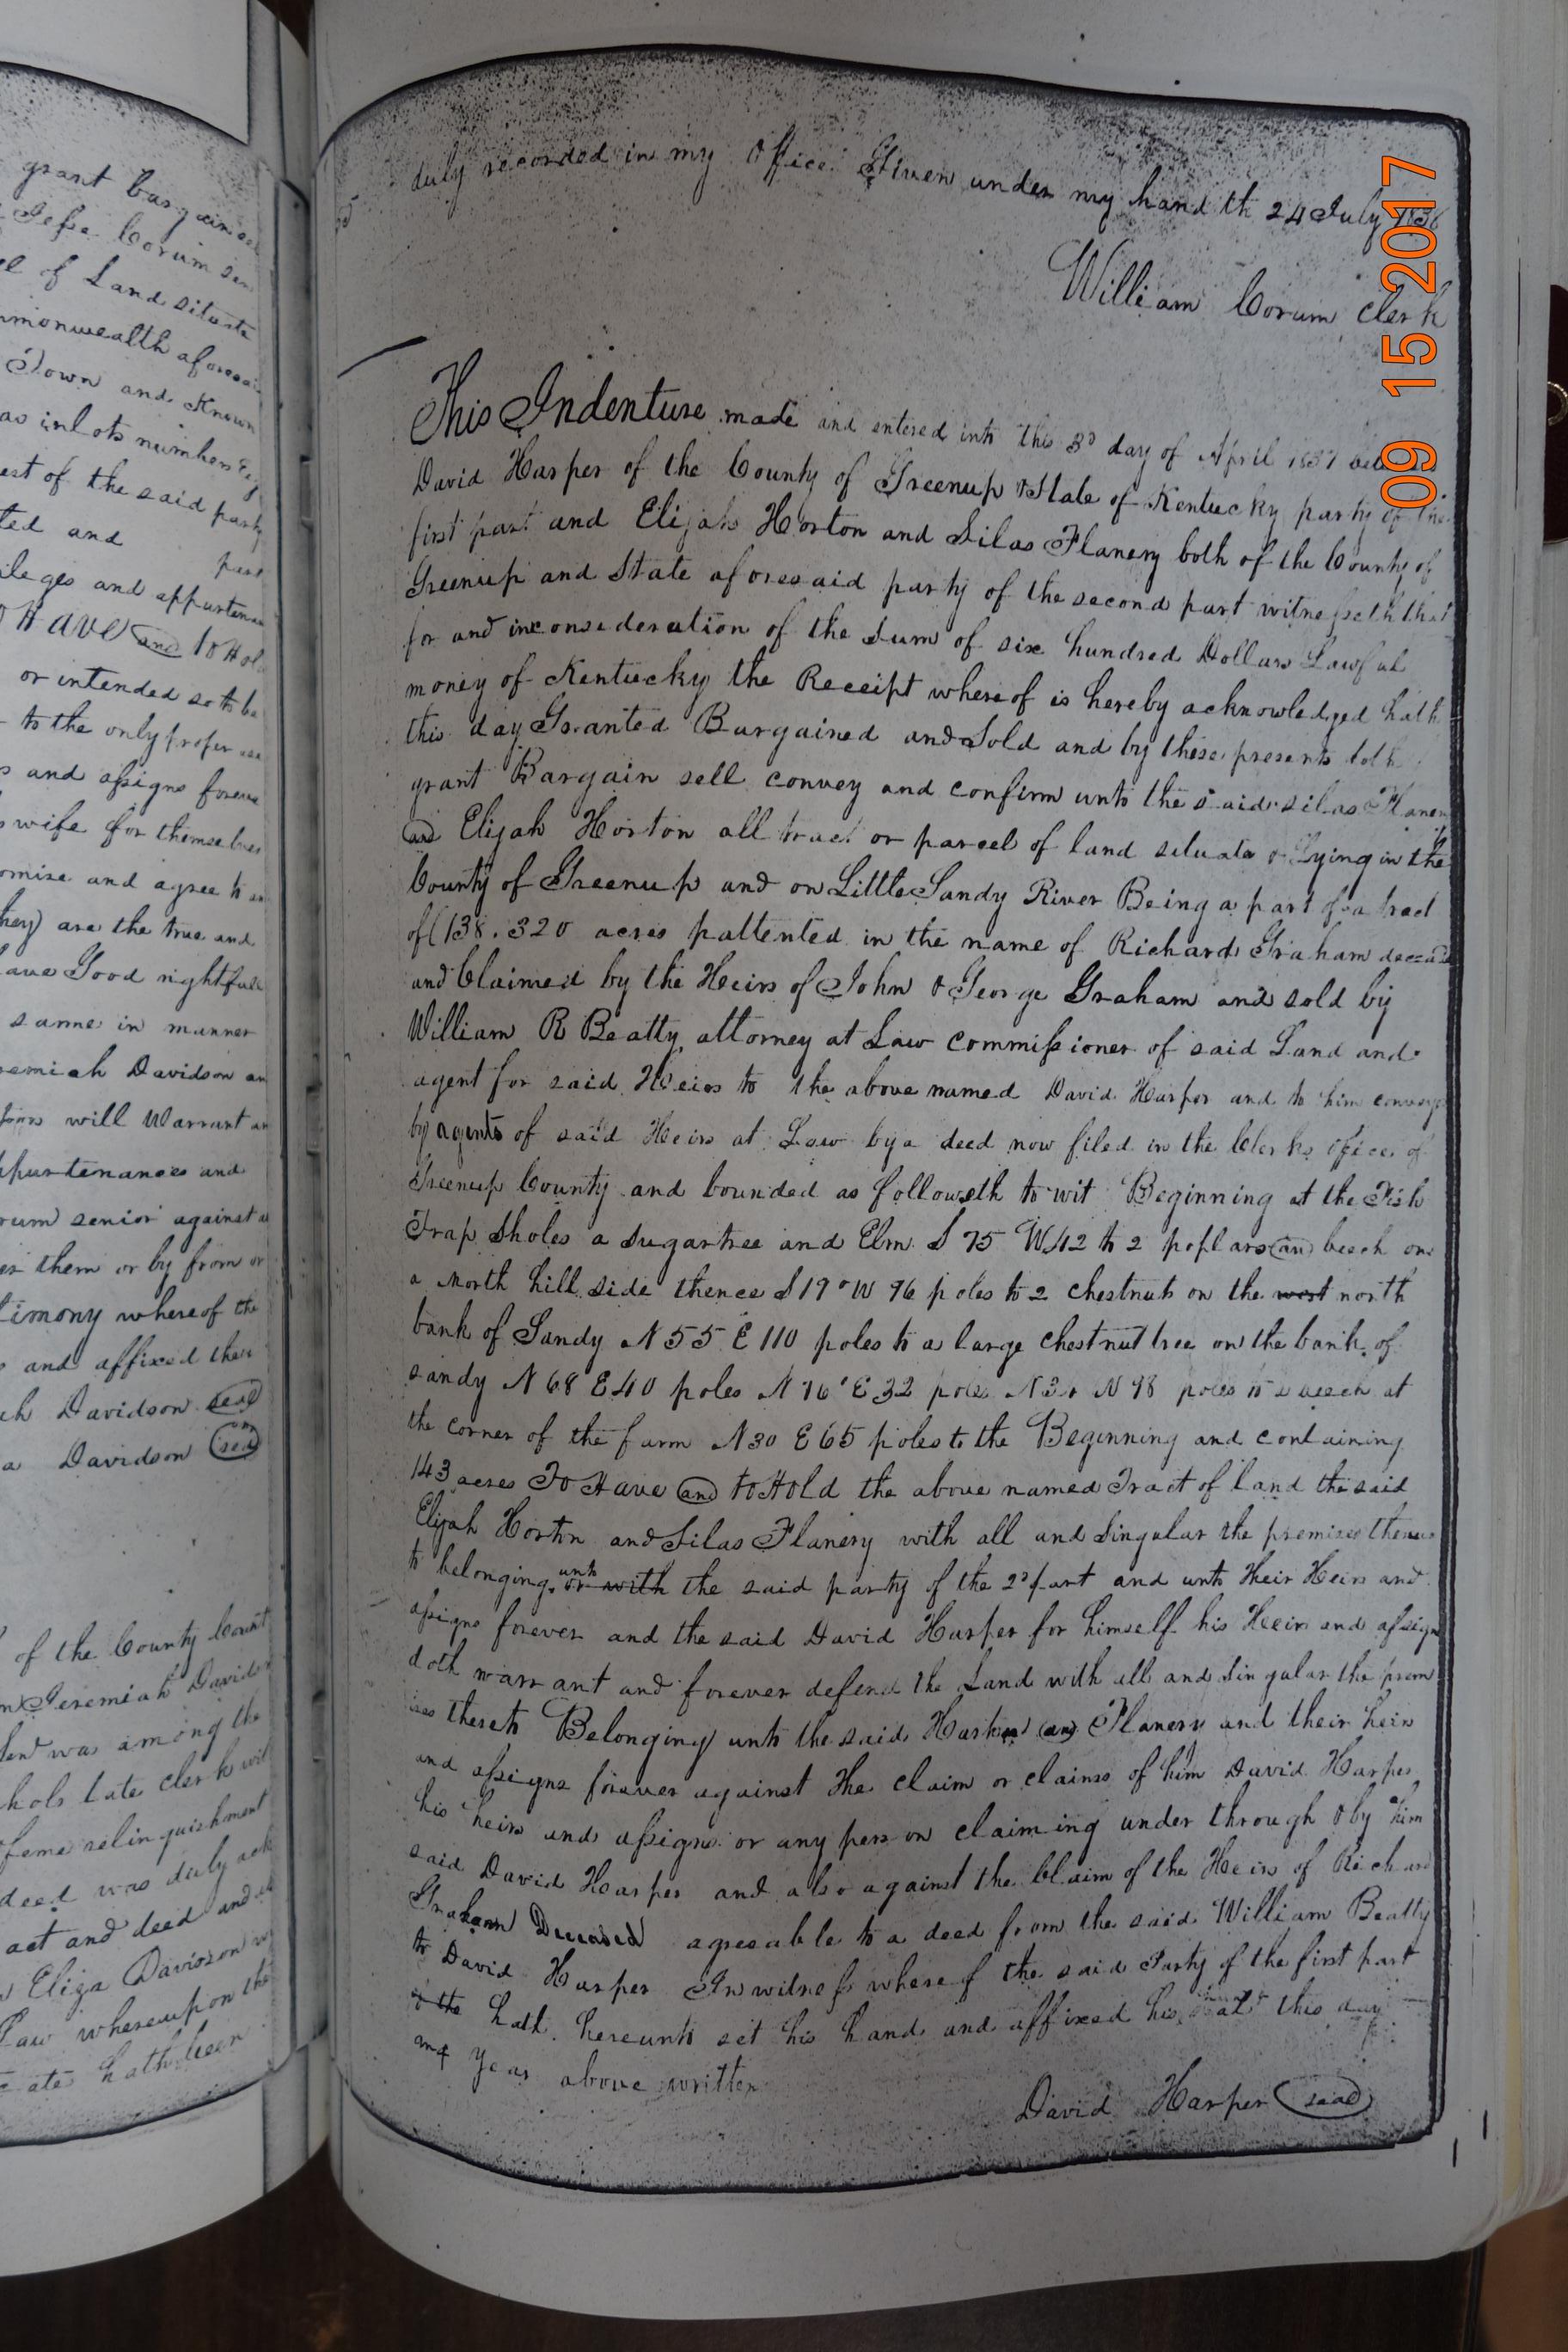 grant bargain
Jesse Corum sen
of Land situate
mmonwealth aforesai
Town and Known
as inlots numbers
est of the said party
ted and part
ileges and appurtena
HAVE and to Hol
or intended so to be
to the only proper use
and assigns foreve
wife for themselves
omise and agree to
hey are the true and
ave Good rightfull
same in manner
remiah Davidson an
will Warrant an
ppurtenances and
rum senior against a
them or by from or
timony whereof the
and affixed their
ch Davidson seal
a Davidson seal
of the County Court
Jeremiah Davids
was among the
hols late clerk
feme relinquishment
deed was duly ack
act and deed and
Eliza Davidson
Law whereupon the
ate hath been
duly recorded in my Office Given under my hand th 24 July 1836
William Corum Clerk
This Indenture made and entered into this 3d day of April 1837
David Harper of the County of Greenup & State of Kentucky party of the
first part and Elijah Horton and Silas Flanery both of the County of
Greenup and State aforesaid party of the second part witnesseth that
for and inconsideration of the Sum of six hundred Dollars Lawful
money of Kentucky the Receipt whereof is hereby acknowledged hath
this day Granted Bargained and Sold and by these presents doth
grant Bargain sell convey and confirm unto the said silas Flanery
and Elijah Horton all tract or parcel of land situate & Lying in the
County of Greenup and on Little Sandy River Being a part of a tract
of (138.320 acres pattented in the name of Richard Graham
and Claimed by the Heirs of John & George Graham and sold by
William R Beatty attorney at Law commissioner of said Land and
agent for said Heirs to the above named David Harper and to him convey
by agents of said Heirs at Law by a deed now filed in the Clerks office of
Greenup County and bounded as followeth to wit Beginning at the Fish
Trap Sholes a Sugartree and Elm S 75 W 42 to 2 poplars an beech on
a North hill side thence S 19° W 96 poles to 2 chestnuts on the west north
bank of Sandy N 55 E 110 poles to a large chestnut tree on the bank of
sandy N 68 E 40 poles N 76° E 32 poles poles to a beech at
the corner of the farm N 30 E 65 poles to the Beginning and containing
143 acres To Have and to Hold the above named Tract of land the said
Elijah Hortn and Silas Flanery with all and Singular the premises
to belonging unto or with the said party of the 2d part and unto Their Heirs and
assigns forever and the said David Harper for himself his Heirs and assigns
doth warrant and forever defend the Land with all and Singular the prem
ises thereto Belonging unto the said and Flanery and their heirs
and assigns forever against the claim or claims of him David Harper
his heirs and assigns or any person claiming under through & by him
said David Harper and also against the Claim of the Heirs of Richard
Graham Deceased agreeable to a deed from the said William Beatty
to David Harper In witness whereof the said Party of the first part
hath hereunto set his hand and affixed his seal this day
and year above written
David Harper seal
09 15 2017